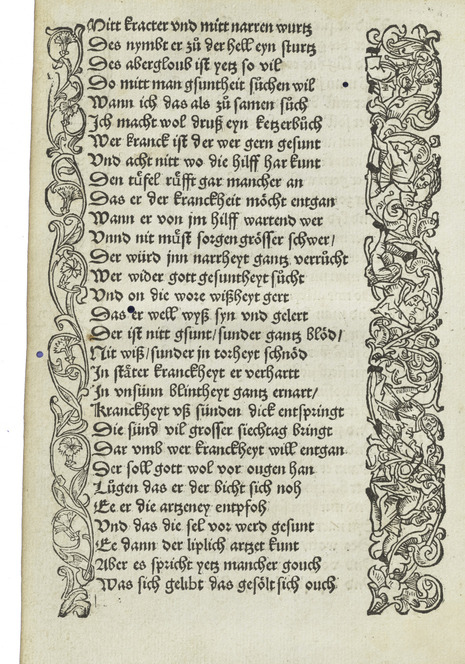 Mitt kracter vnd mitt narren wurtz
Des nymbt er zů der hell eyn sturtz
Des abergloub ist yetz so vil
Do mitt man gsuntheit sůchen wil
Wann ich das als zů samen sůch
Jch macht wol druß eyn ketzerbůch
Wer kranck ist der wer gern gesunt
Vnd acht nitt wo die hilff har kunt
Den tüfel rüfft gar mancher an
Das er der kranckheit möcht entgan
Wann er von jm hilff wartend wer
Vnnd nit müst sorgen grösser schwer/
Der würd jnn narrheyt gantz verrücht
Wer wider gott gesuntheyt sücht
Vnd on die wore wißheyt gert
Das er well wyß syn vnd gelert
Der ist nitt gsunt/sunder gantz blöd/
Nit wiß/sunder jn torheyt schnöd
Jn stäter kranckheyt er verhartt
Jn vnsünn blintheyt gantz ernart/
Kranckheyt vß sünden dick entspringt
Die sünd vil grosser siechtag bringt
Dar vmb wer kranckheyt will entgan
Der soll gott wol vor ougen han
Lůgen das er der bicht sich noh
Ee er die artzeney entpfoh
Vnd das die sel vor werd gesunt
Ee dann der liplich artzet kunt
Aber es spricht yetz mancher gouch
Was sich gelibt das gesölt sich ouch